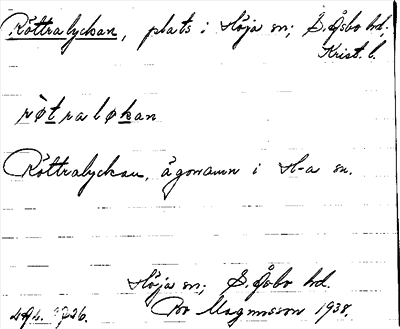 Röttralyckan, plats i Höja sn; S. Åsbo hd;
Krist. l.
røtraløkan
Röttralyckan, ägonamn i H-a sn.
Höja sn; S. Åsbo hd.
Por Magnusson 1938.